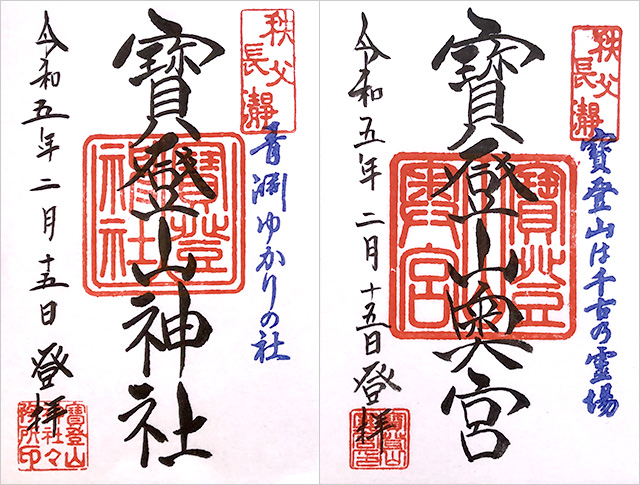 秩父
長瀞
青淵ゆかりの社
寳登山神社
寳登山
神社
令和五年二月十五日 登拝
寳登山
神社々
務所印
秩父
長瀞
寳登山は千古乃霊場
寳登山奥宮
寳登山
奥宮
令和五年二月十五日 登拝